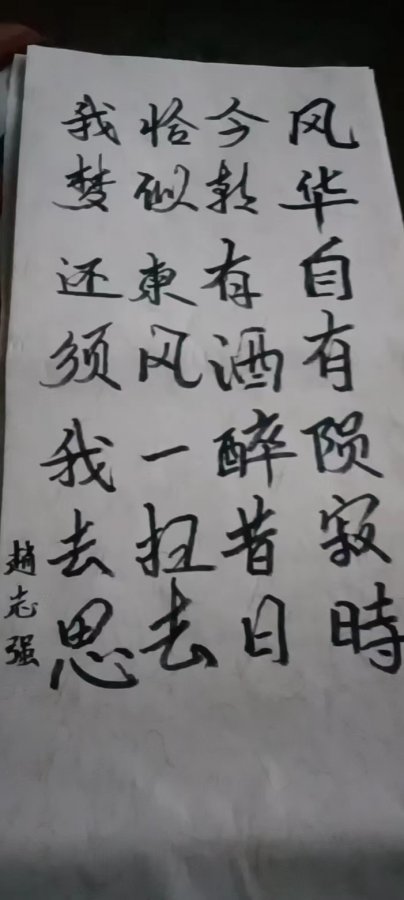 风华自有陨寂時
今朝有酒醉昔日
恰似東风一扫去
我梦还须我去思
趙志强